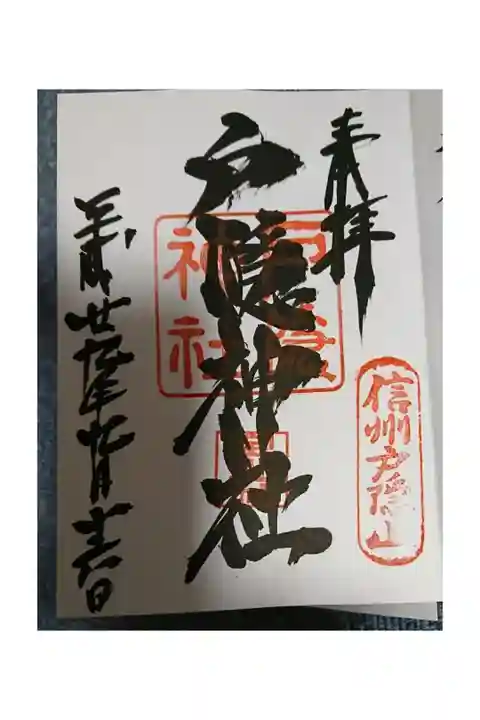 奉拝
信州戸隠山
戸隠神社
戸隠
神社
平成廿九年九月十六日